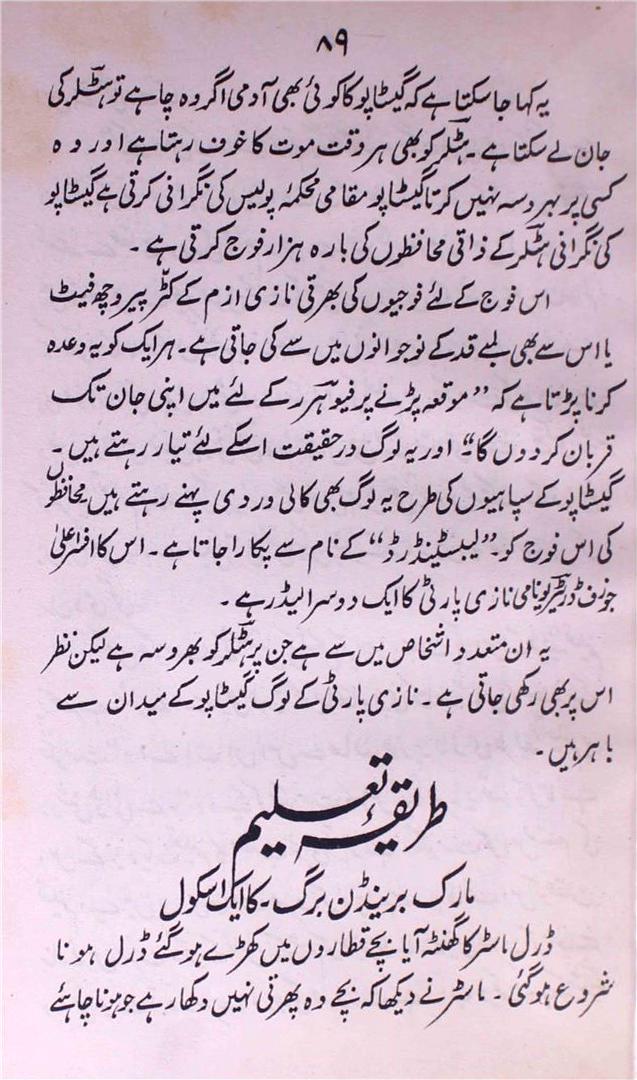 ۸۹
یہ کہا جا سکتا ہے کہ گیسٹاپو کا کوئی بھی آدمی اگر وہ چاہے تو ہٹلر کی
جان لے سکتا ہے۔ ہٹلر کو بھی ہر وقت موت کا خوف رہتا ہے اور وہ
کسی پر بہروسہ نہیں کرتا گیسٹاپو مقامی محکمۂ پولیس کی نگرانی کرتی ہے گیسٹاپو
کی نگرانی ہٹلر کے ذاتی محافظوں کی بارہ ہزار فوج کرتی ہے۔
اس فوج کے لئے فوجیوں کی بھرتی نازی ازم کے کٹر پیرو چھ فیٹ
یا اس سے بھی لمبے قد کے نوجوانوں میں سے کی جاتی ہے۔ ہر ایک کو یہ وعدہ
کرنا پڑتا ہے کہ ”موقعہ پڑنے پر فیوہرر کے لئے میں اپنی جان تک
قربان کر دوں گا“ اور یہ لوگ در حقیقت اسکے لئے تیار رہتے ہیں۔
گیسٹاپو کے سپاہیوں کی طرح یہ لوگ بھی کالی وردی پہنے رہتے ہیں۔ محافظوں
کی اس فوج کو ”لیبسٹینڈرڈ“ کے نام سے پکارا جاتا ہے۔ اس کا افسر اعلیٰ
جوزف ڈرٹیریو نامی نازی پارٹی کا ایک دوسرا لیڈر ہے۔
یہ ان متعدد اشخاص میں سے ہے جن پر ہٹلر کو بھروسہ ہے لیکن نظر
اس پر بھی رکھی جاتی ہے۔ نازی پارٹی کے لوگ گیسٹاپو کے میدان سے
باہر ہیں۔
طریقۂ تعلیم
مارک برینڈن برگ۔ کا ایک اسکول
ڈرل ماسٹر کا گھنٹہ آیا بچے قطاروں میں کھڑے ہو گئے ڈرل ہونا
شروع ہو گئی۔ ماسٹر نے دیکھا کہ بچے وہ پھرتی نہیں دکھا رہے جو ہونا چاہئے